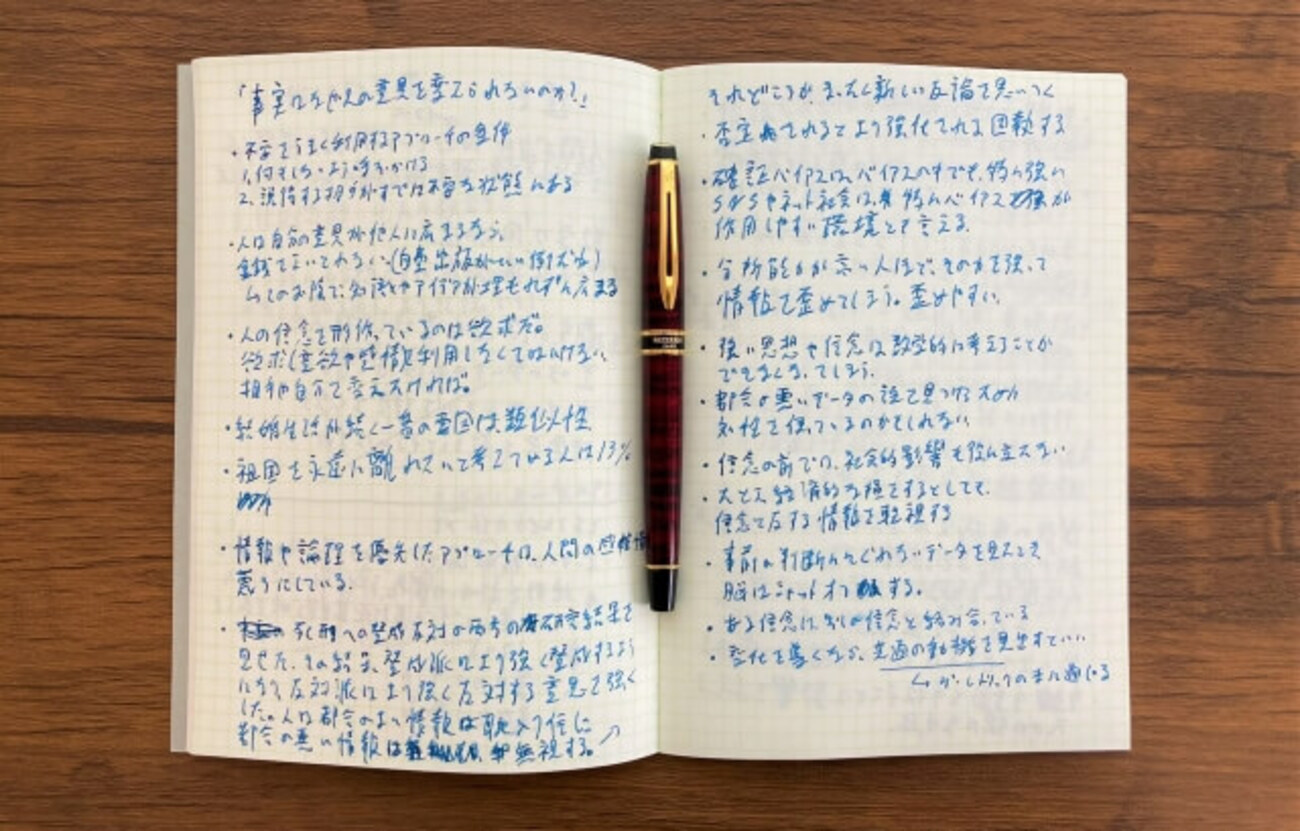 「事実はなぜ人の意見を変えられないのか?」
・不安をうまく利用するアプローチの条件
1, 何もしないよう
2, 説得する相手がすでに不安な状態にある
・人は自分の意見が他人に広まるなら、
金銭 (自費出版がいい例だな)
このお陰で、知識やアイデアが埋もれずに広まる
・人の信念を形作っているのは欲求だ。
欲求(意欲や感情)を利用しなくてはいけない、
相手や自分を変えたければ。
・結婚生活が続く一番の要因は、類似性
・祖国を永遠に離れたいと考えている人は13%
・情報や論理を優先したアプローチは、人間の
蔑ろにしている。
・死刑への賛成反対の両者の研究結果を
見せた。その結果、賛成派はより強く賛成するよう
になり、反対派はより強く反対する意思を強く
した。人は都合のよい情報は取り入れ
都合の悪い情報は 無視する。↗
それどころか、まったく新しい反論を思いつく
・否定されるとより強化される 回数する
・確証バイアスは、バイアスの中でも、特に強い
SNSやネット社会は、特にバイアス が
作用しやすい環境と言える。
・分析能力が高い人ほど、その力を強
情報を歪めてしまう。歪めやすい。
・強い思想や信念は数学的に考えることが
できなくなってしまう。
・都合の悪いデータの 見つけるため
知性を使っているのかもしれない
・信念の前では、社会的影響も役に立たない
・たとえ経済的な損をするとしても、
信念と反する情報を無視する
・事前の判断にそぐわないデータを見たとき
脳はシャットオフする。
・ある信念は、別の信念と絡み合っている
・変化を導くなら、共通の動機を見出すといい